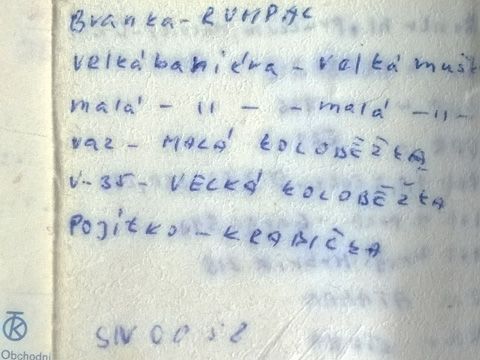 Branka - RUMPÁL
velká baniéra - velká mušk
malá - 11 - - malá - 11 -
VAZ - MALÁ KOLOBĚŽKA
V-35 - VELKÁ KOLOBĚŽKA
Pojítko - KRABIČKA
SIV 00 52
Obchodní